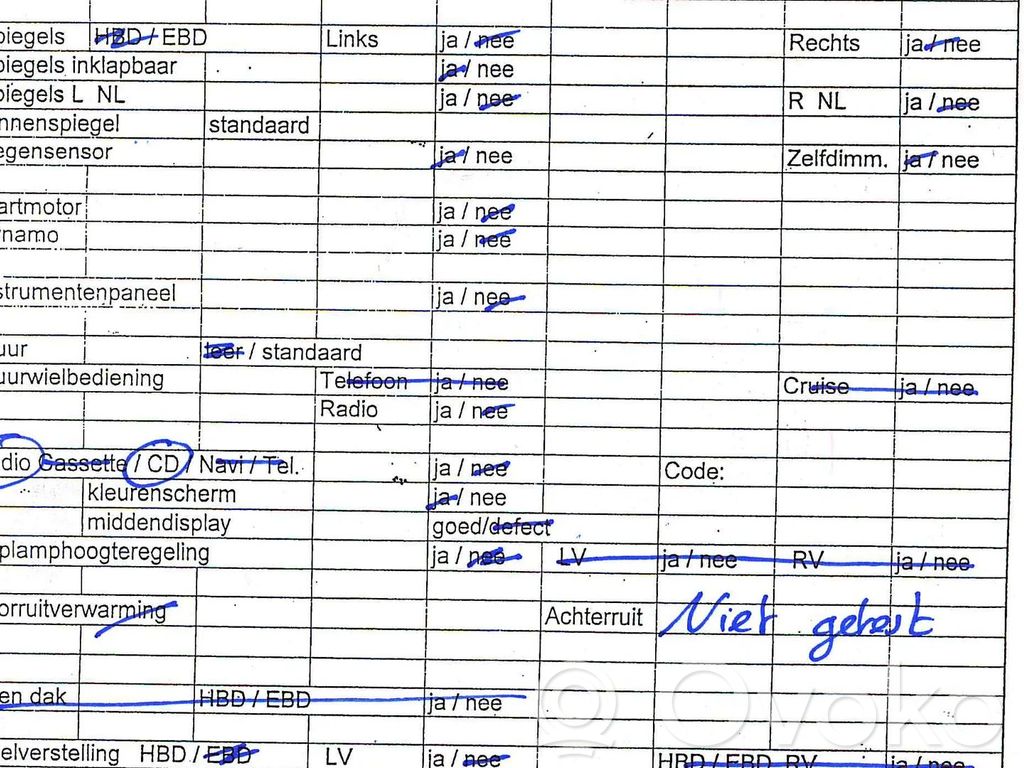 piegels HBD / EBD Links ja / nee Rechts ja / nee
piegels inklapbaar ja / nee
piegels L NL ja / nee R NL ja / nee
nnenspiegel standaard
egensensor ja / nee Zelfdimm. ja / nee
artmotor ja / nee
namo ja / nee
strumentenpaneel ja / nee
uur leer / standaard
uurwielbediening Telefoon ja / nee Cruise ja / nee
Radio ja / nee
dio Cassette / CD / Navi / Tel. ja / nee Code:
kleurenscherm ja / nee
middendisplay goed/defect
plamphoogteregeling ja / nee LV ja / nee RV ja / nee
orruitverwarming Achterruit Niet getest
en dak HBD / EBD ja / nee
elverstelling HBD / EBD LV ja / nee HBD / EBD RV ja / nee
Ovoko